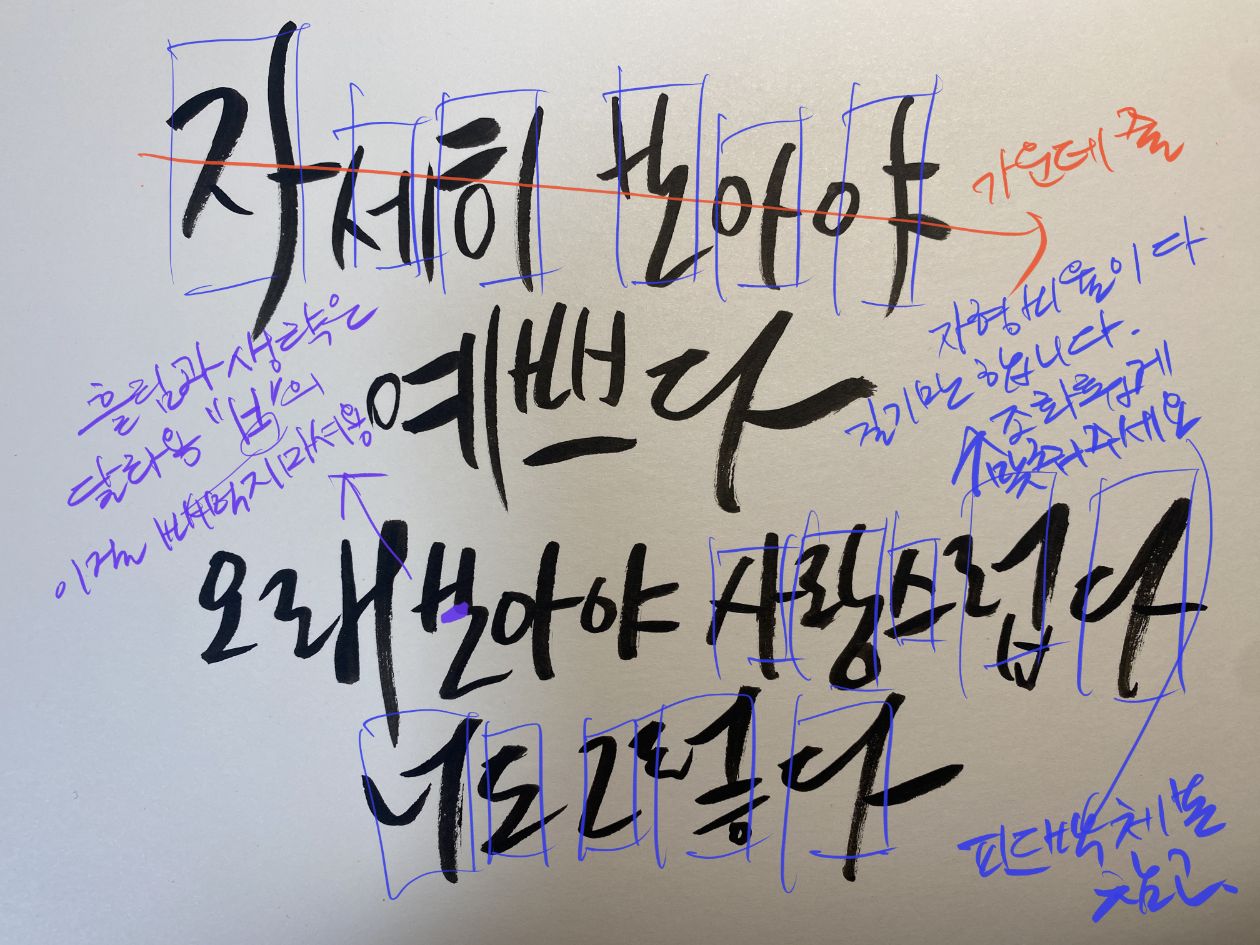 자세히 보아야
가운데 줄
예쁘다
흘림과 생략은
달라용 "보"의
이걸 빼먹지마셔용
자형비율이 다
길기만 합니다.
조화롭게
맞춰주세요
오래 보아야 사랑스럽다
너도 그렇다
피드백 체본
참고